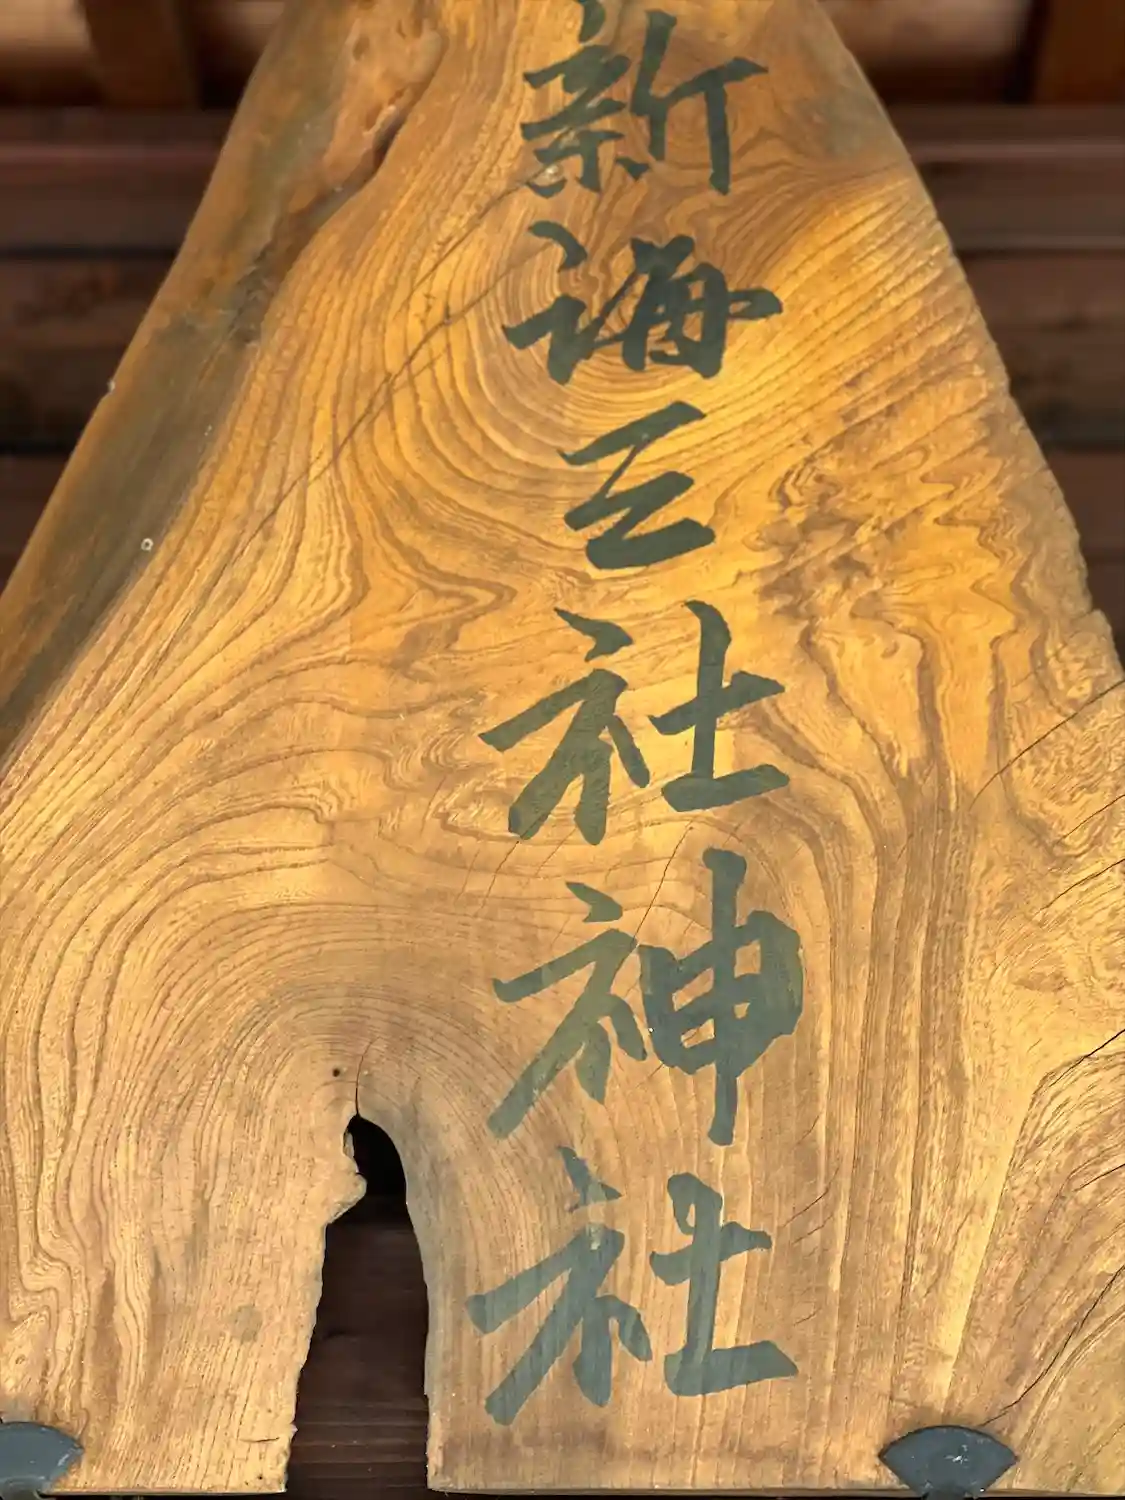 新海三社神社